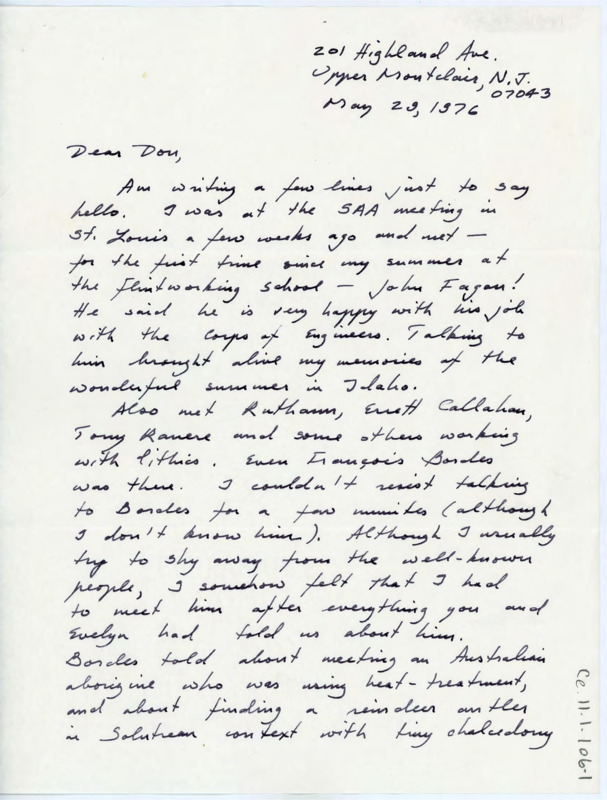 201 Highland Ave.
Upper Montclair, N.J.
07043
May 29, 1976
Dear Don,
Am writing a few lines just to say
hello. I was at the SAA meeting in
St. Louis a few weeks ago and met —
for the first time since my summer at
the flintworking school — John Fagan!
He said he is very happy with his job
with the Corps of Engineers. Talking to
him brought alive my memories of the
wonderful summer in Idaho.
Also met Ruthann, Errett Callahan,
Tony Ranere and some others working
with lithics. Even François Bordes
was there. I couldn't resist talking
to Bordes for a few minutes (although
I don't know him). Although I usually
try to shy away from the well-known
people, I somehow felt that I had
to meet him after everything you and
Evelyn had told us about him.
Bordes told about meeting an Australian
aborigine who was using heat-treatment,
and about finding a reindeer antler
in Solutrean context with tiny chalcedony
Ce.11.1.106-1